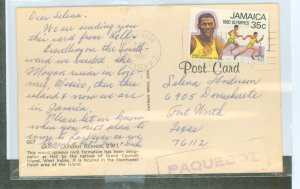 Dear Selena,
We are sending you
this card from Hell.
Travelling on the South-
ward we visited the
Mayan ruins in Coz-
mel, Mexico, then this
island & now we are
in Jamaica.
Please let us know
when you
to come to Las Vegas as we
GC7
GRAND CAYMAN ISLANDS, B.W.I.
This weird igneous rock formation has been desig-
nated as Hell by the natives of Grand Cayman
Island, West Indies. It is located in the Northwest
Point area of the island.
JAMAICA
1980 OLYMPICS
35c
Post Card
Selena Anderson
6905
Fort Worth
Texas
76112
PAQUEBOT